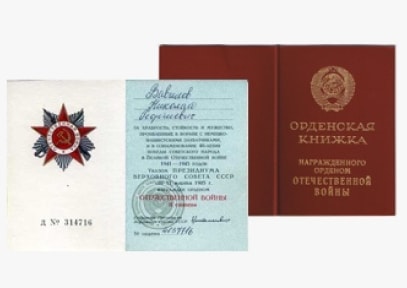 Вавилов
Николай
За храбрость, стойкость и мужество,
проявленные в борьбе с немецко-
фашистскими захватчиками,
и в ознаменование 40-летия
победы советского народа
в Великой Отечественной войне
1941—1945 годов
Указом ПРЕЗИДИУМА
ВЕРХОВНОГО СОВЕТА СССР
от 11 марта 1985 г.
награжден орденом
ОТЕЧЕСТВЕННОЙ ВОЙНЫ
II степени
№ ордена
Д № 314716
ОРДЕНСКАЯ
КНИЖКА
НАГРАЖДЕННОГО
ОРДЕНОМ
ОТЕЧЕСТВЕННОЙ
ВОЙНЫ